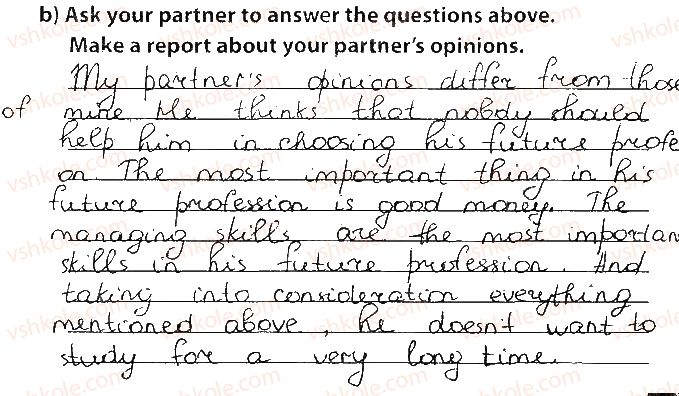 b) Ask your partner to answer the questions above.
Make a report about your partner's opinions.
My partner's opinions differ from those
of mine. He thinks that nobody should
help him in choosing his future profe
on. The most important thing in his
future profession is good money. The
managing skills are the most importan
skills in his future profession. And
taking into consideration everything
mentioned above, he doesn't want to
study for a very long time.